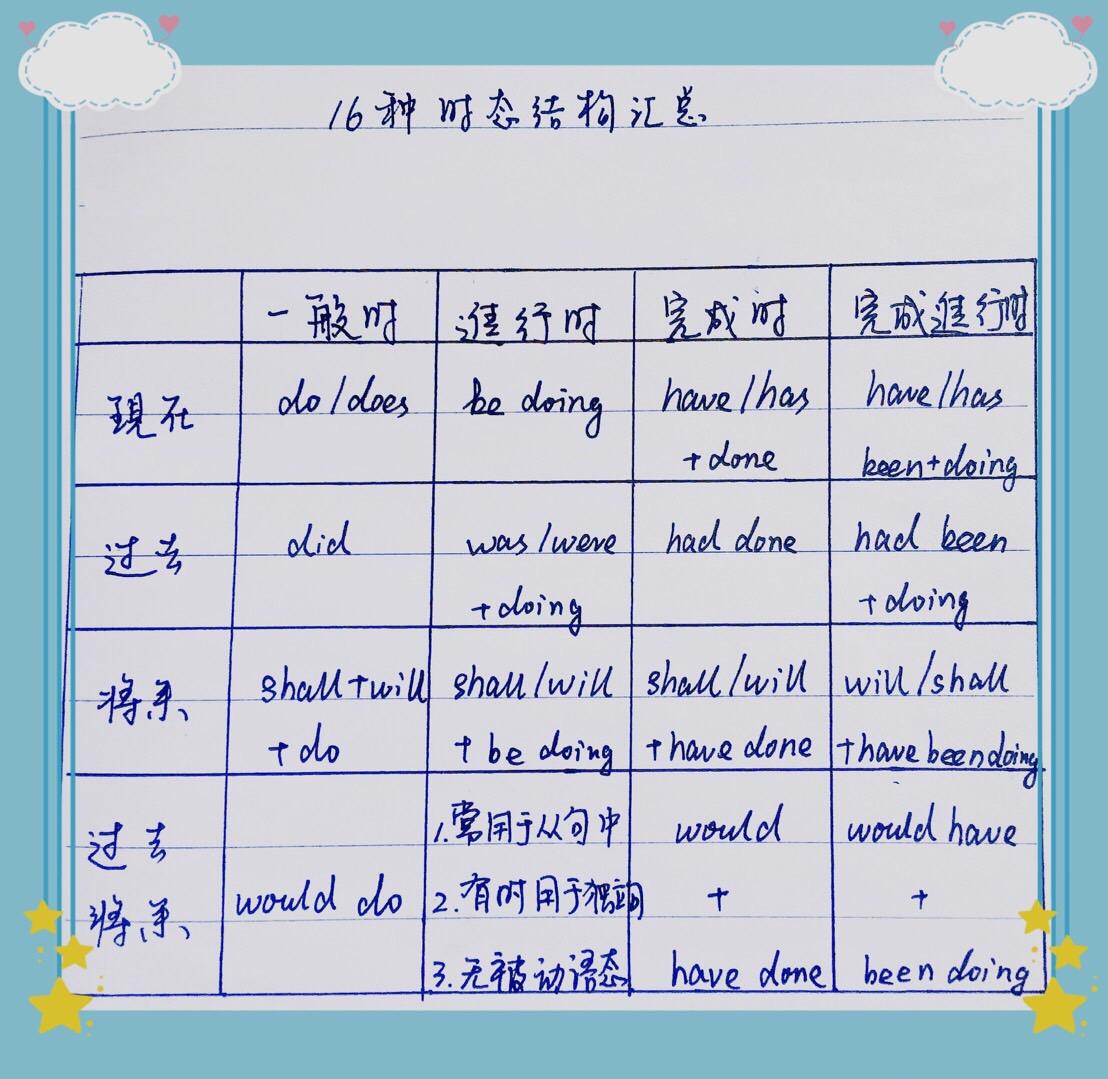 16种时态结构汇总
一般时 進行时 完成时 完成進行时
現在 do/does be doing have/has have/has
+done been+doing
过去 did was/were had done had been
+doing +doing
将来 shall+will shall/will shall/will will/shall
+do + be doing +have done +have been doing
过去 1.常用于从句中 would would have
将来 would do 2.有时用于独立句 + +
3.无被动语态 have done been doing